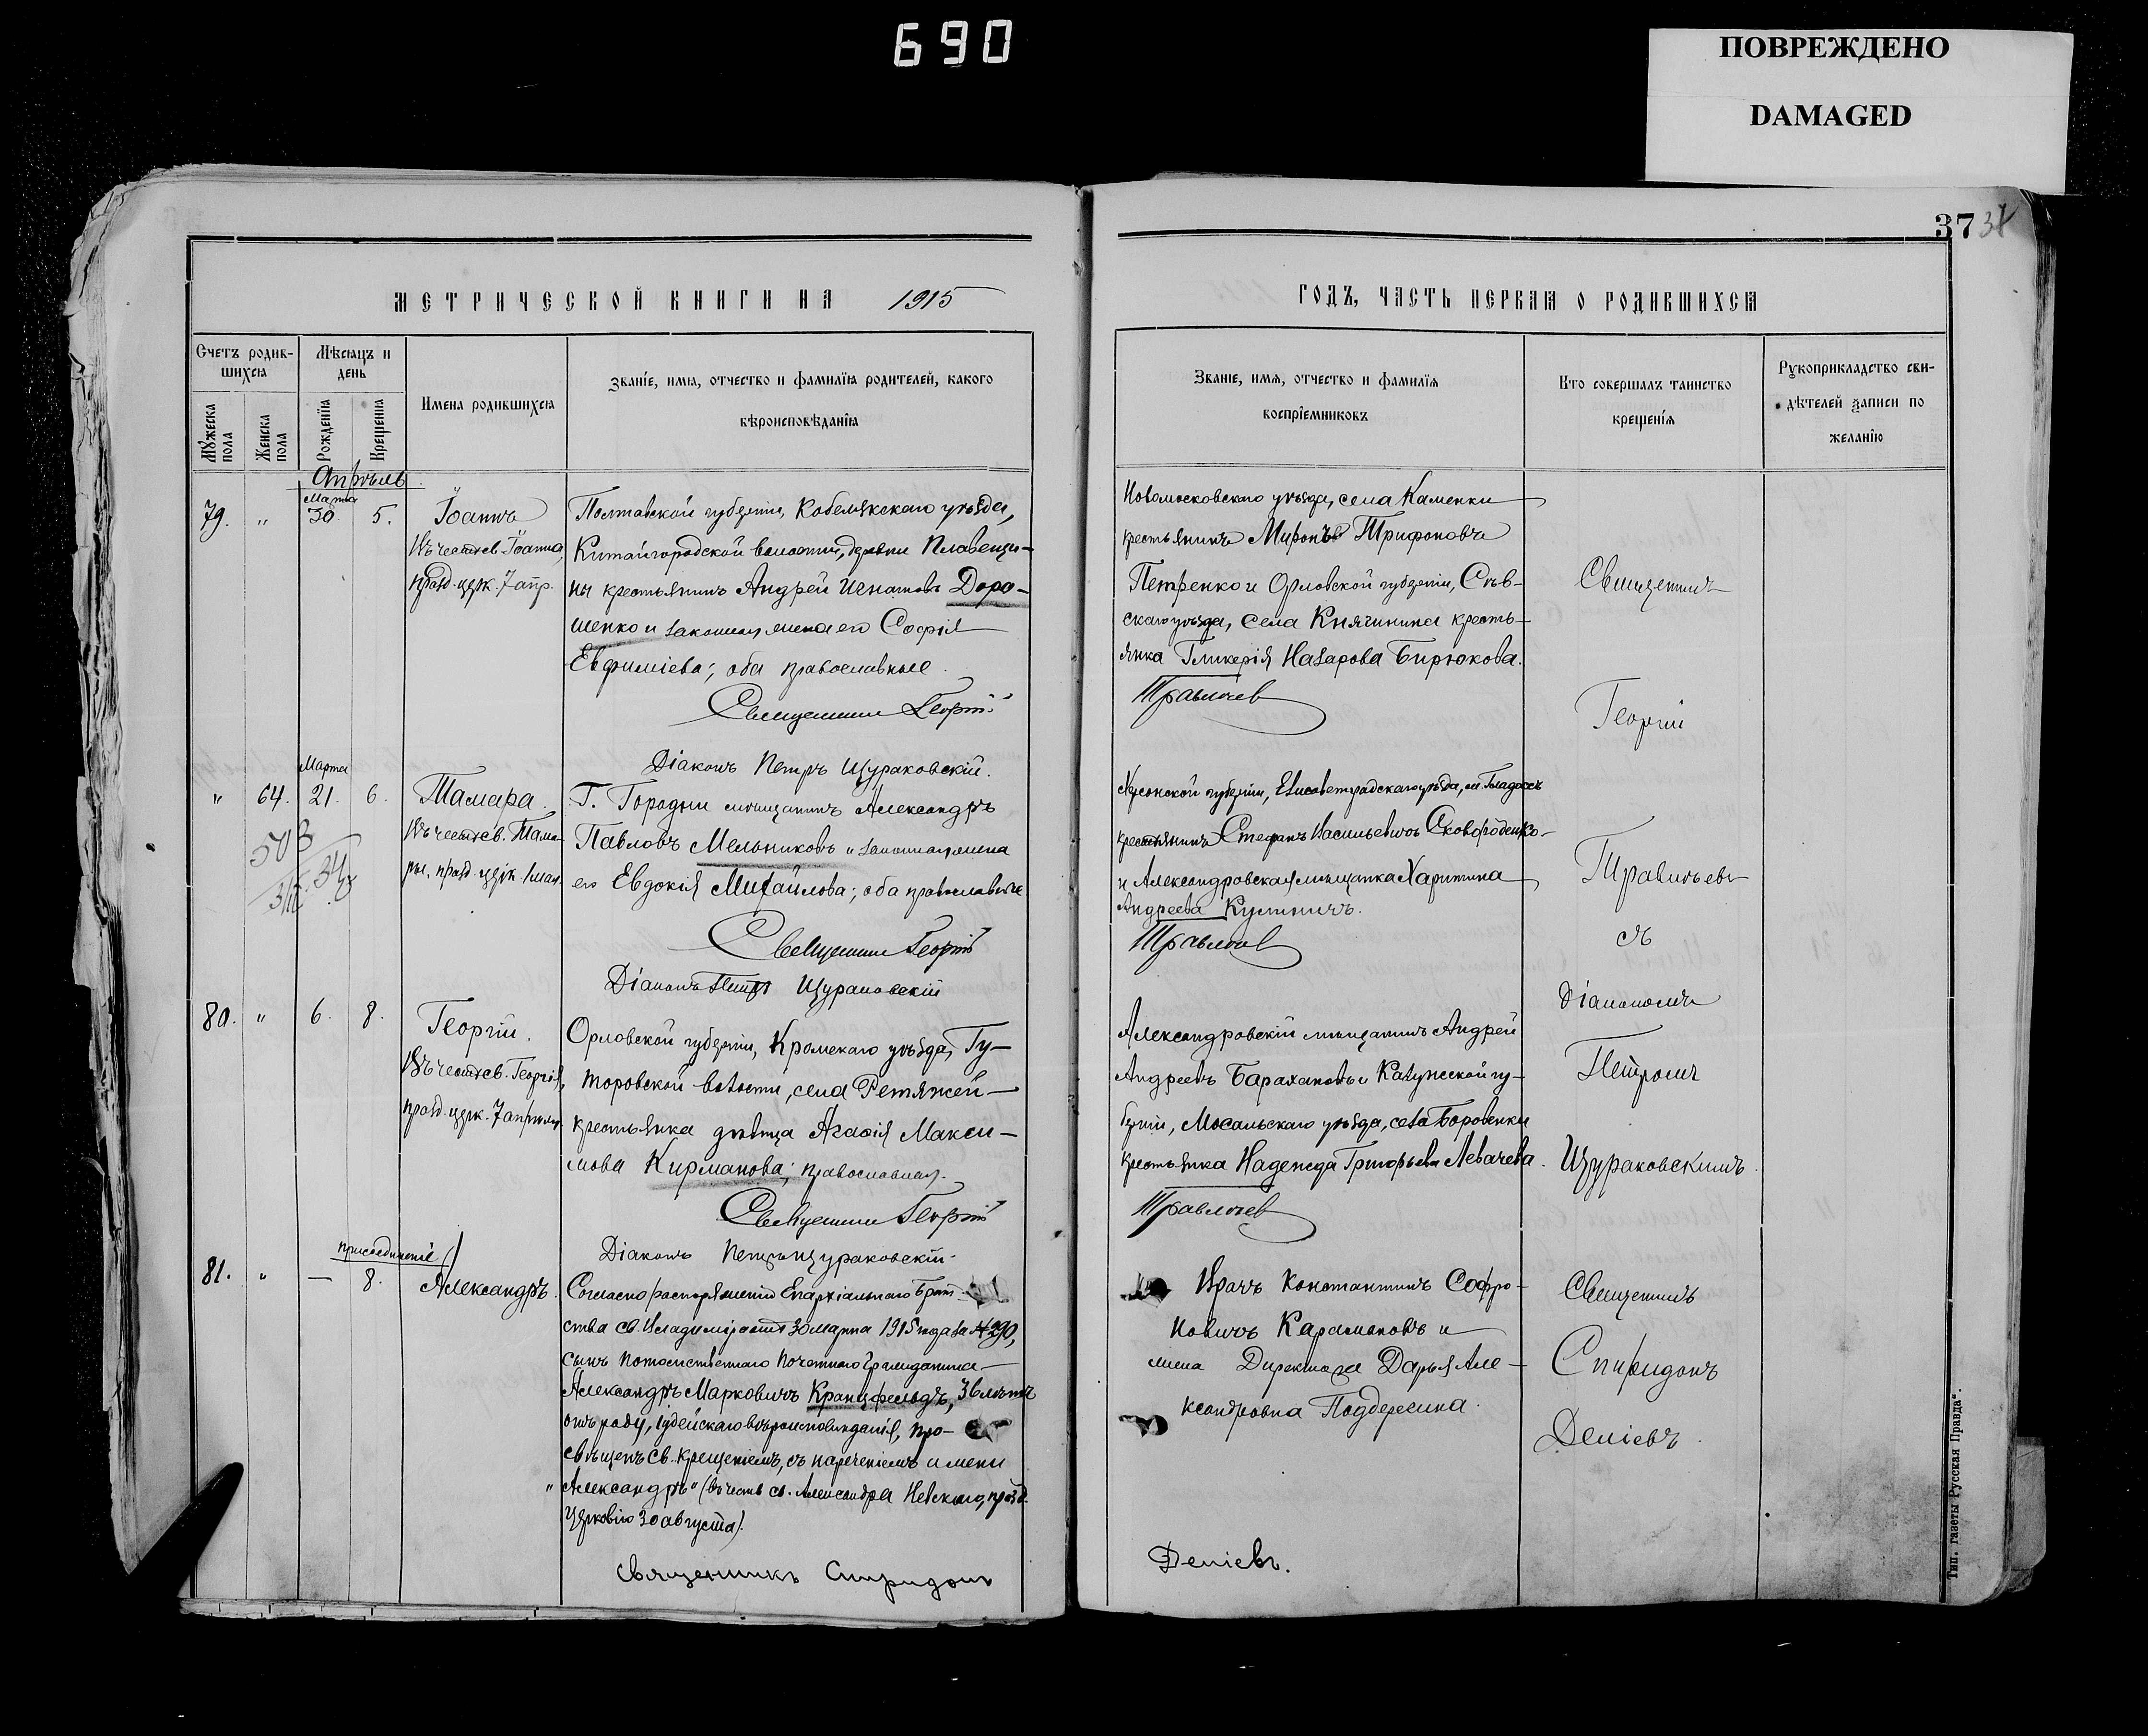 690
ПОВРЕЖДЕНО
DAMAGED
37
МЕТРИЧЕСКОЙ КНИГИ НА 1915
ГОДЪ, ЧАСТЬ ПЕРВАЯ О РОДИВШИХСЯ
Счетъ родив-
шихся
Мужеска пола
Женска пола
Мѣсяцъ и
день
Рожденїя
Крещенїя
Имена родившихся
Званїе, имя, отчество и фамилїя родителей, какого
вѣроисповѣданїя
Званїе, имя, отчество и фамилїя
воспрїемниковъ
Кто совершалъ таинство
крещенїя
Рукоприкладство сви-
дѣтелей записи по
желанїю
Апрѣль
79. " Марта 30. 5.
Іоаннъ
Въ честь св. Іоанна,
празд. црк. 7 апр.
Полтавской губерніи, Кобелякскаго уѣзда,
Китайгородской волости, деревни Плавещи-
ны крестьянинъ Андрей Игнатовъ Доро-
шенко и законная жена его Софія
Евфиміева; оба православные.
Священникъ Георгій
Діаконъ Петръ Щураковскій.
Новомосковскаго уѣзда, села Каменки
крестьянинъ Миронъ Трифоновъ
Петренко и Орловской губерніи, Сѣв-
скаго уѣзда, села Княгинина кресть-
янка Гликерія Назарова Бирюкова.
Травлѣев
" 64. Марта 21. 6.
503
Тамара.
Въ честь св. Тама-
ры, празд. црк. 1 мая.
Г. Городни мѣщанинъ Александръ
Павловъ Мельниковъ и законная жена
его Евдокія Михайлова; оба православные
Священникъ Георгій
Діаконъ Петръ Щураковскій
Херсонской губерніи, Елисаветградскаго уѣзда, м. Гладоссъ
крестьянинъ Стефанъ Васильевичъ Сковороденко
и Александровская мѣщанка Харитина
Андреева
80. " 6. 8.
Георгій.
Въ честь св. Георгія,
празд. црк. 7 апрѣля.
Орловской губерніи, Кромскаго уѣзда, Гу-
торовской волости, села Ретяжей
крестьянка дѣвица Агафія Макси-
мова Кирманова; православная.
Священникъ Георгій
Діаконъ Петръ Щураковскій.
Александровскій мѣщанинъ Андрей
Андреевъ Барахановъ и Калужской гу-
берніи, Мосальскаго уѣзда, села Боровенки
крестьянка Надежда Григорьева Левачева.
Священникъ
Георгій
съ
Діакономъ
Петромъ
Щураковскимъ.
присоединеніе
81. " — 8.
Александръ.
Согласно распоряженію Епархіальнаго Брат-
ства св. Владиміра отъ 30 марта 1915 года за № 290,
сынъ потомственнаго почетнаго гражданина
Александръ Марковичъ Кранцфельдъ, лѣтъ
отъ роду, іудейскаго вѣроисповѣданія, про-
свѣщенъ св. крещеніемъ, съ нареченіемъ имени
"Александръ" (въ честь св. Александра Невскаго, празд.
Церковію 30 августа).
Священникъ Спиридонъ
Врачъ Константинъ Софро-
новичъ Карамановъ и
жена Директора Дарья Але-
ксандровна Подберезина.
Деміевъ.
Священникъ
Спиридонъ
Деміевъ.
Тип. газеты "Русская Правда".